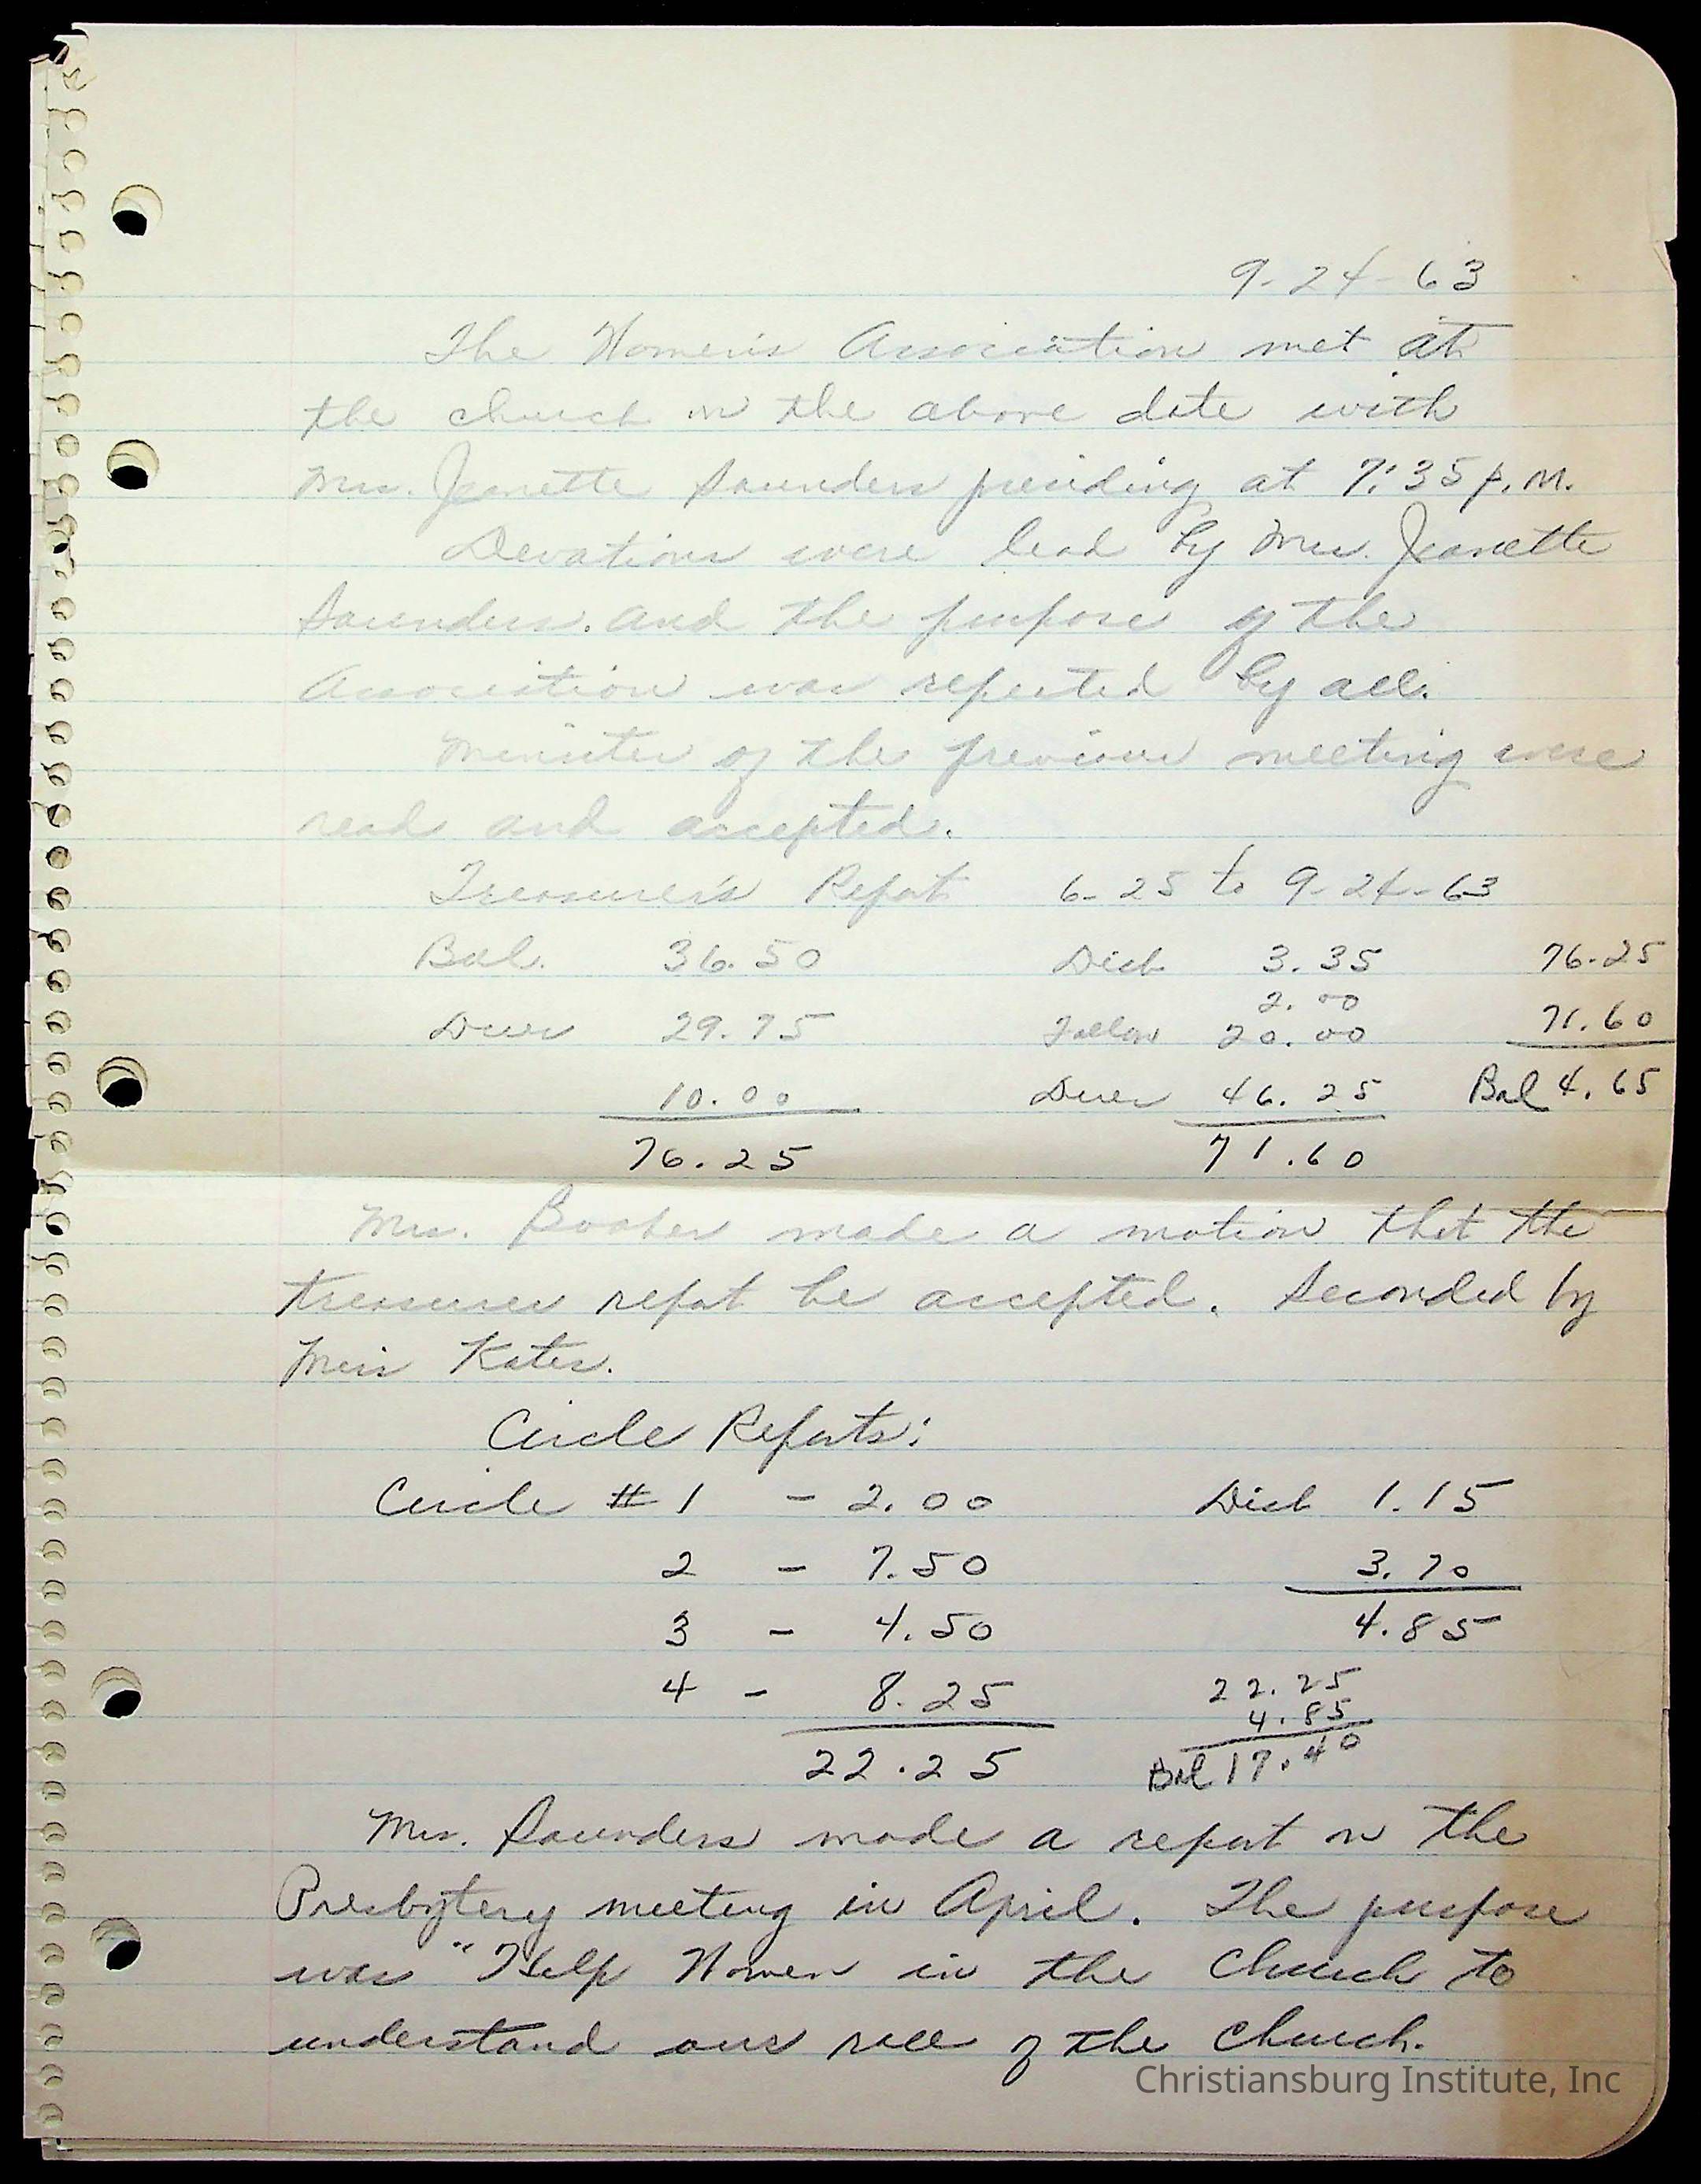 9-24-63
The Women's Association met at
the church on the above date with
Mrs. Jeanette Saunders presiding at 7:35 p.m.
Devotions were lead by Mrs. Jeanette
Saunders. and the purpose of the
Association was repeated by all.
Minutes of the previous meeting were
read and accepted.
Treasurer's Report 6-25 to 9-24-63
Bal. 36.50 Disb 3.35 76.25
2.00
Dues 29.75 20.00 71.60
10.00 Dues 46.25 Bal 4.65
76.25 71.60
Mrs. Booker made a motion that the
treasurer report be accepted. Seconded by
Miss Kates.
Circle Reports:
Circle # 1 - 2.00 Disb 1.15
2 - 7.50 3.70
3 - 4.50 4.85
4 - 8.25 22.25
4.85
22.25 Bal 17.40
Mrs. Saunders made a report on the
Presbytery meeting in April. The purpose
was "Help Women in the Church to
understand our role of the Church.
Christiansburg Institute, Inc